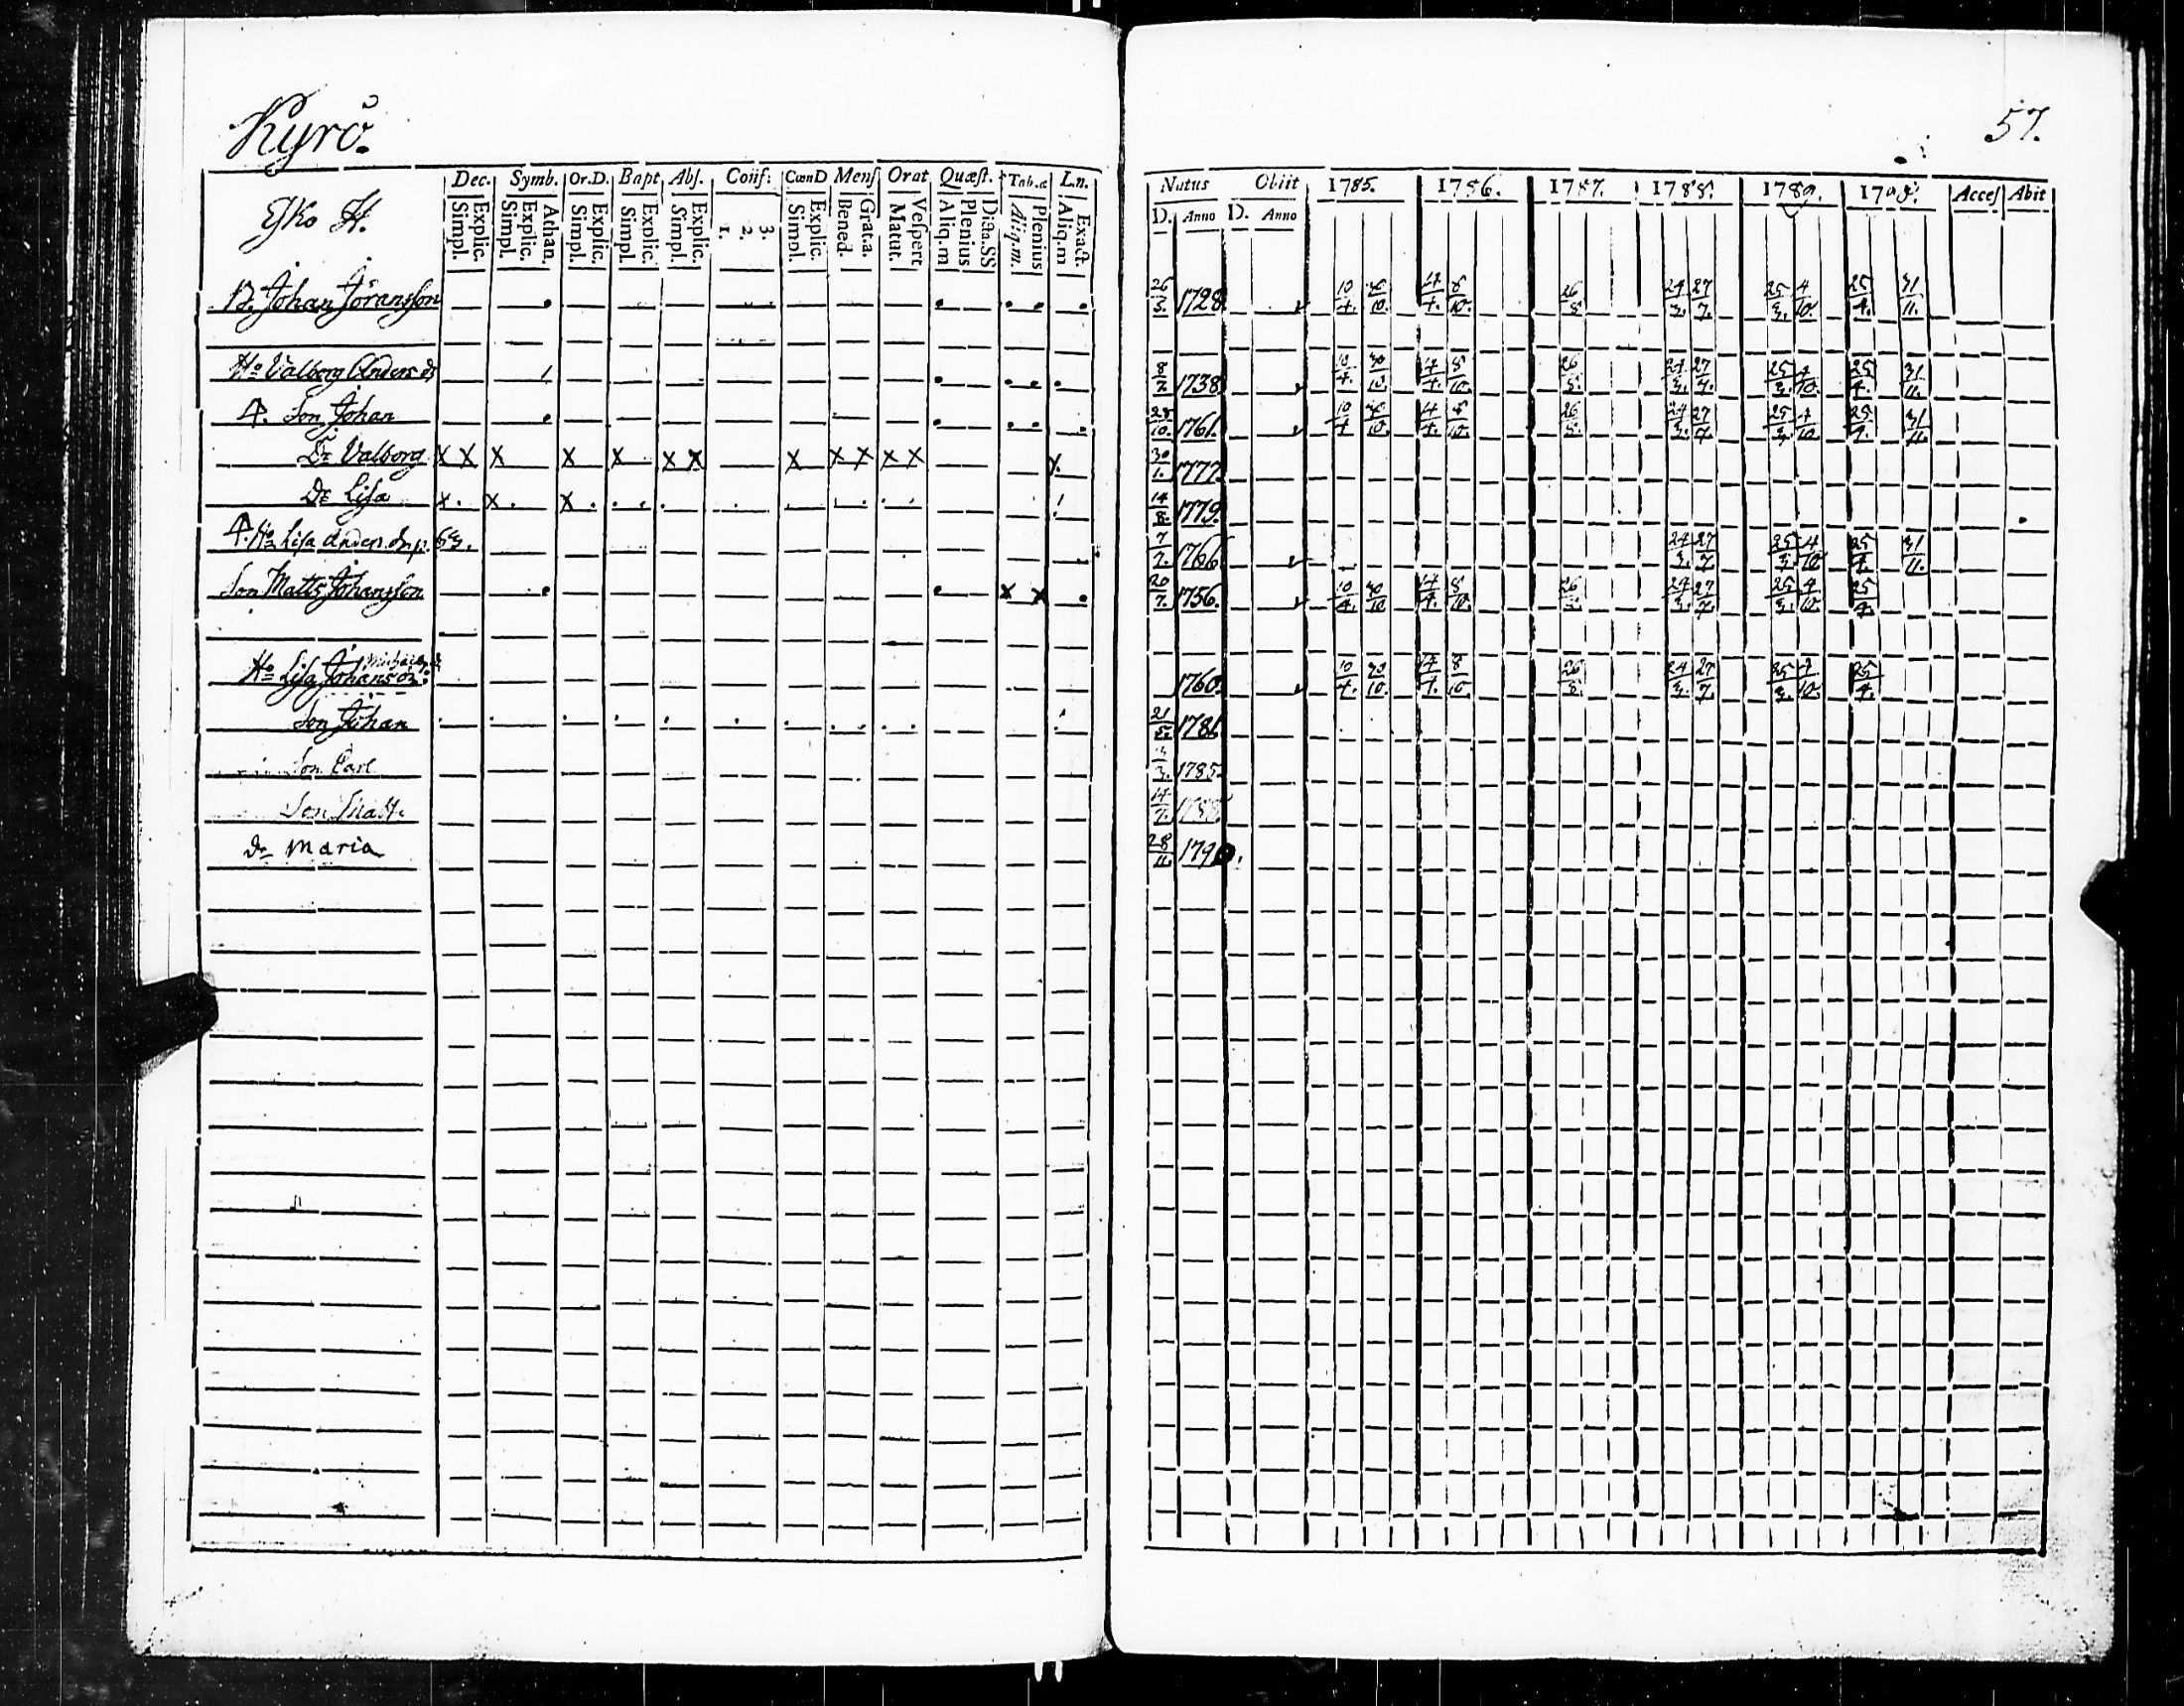 Kyrö. 57.
Dec. Symb. Or.D. Bapt Abs. Conf: CœnD Mens Orat Quæst. Tab.æ L.n. Natus Obiit 1785. 1786. 1787. 1788. 1789. Acces Abit
Explic. Simpl. Athan. Explic. Simpl. Explic. Simpl. Explic. Simpl. Explic. Simpl. 3. 2. 1. Explic. Simpl. Grat.a. Bened. Vespert Matut. Dicta.SS Plenius Aliq.m Plenius Aliq.m. Exact. Aliq.m D. Anno D. Anno
H.
B. Johan Jöransson 26/3. 1728. 10/4. 30/10. 17/4. 8/10. 26/5 24/3. 27/7. 25/3. 4/10. 25/4. 31/11.
Ho Valborg Anders dr 8/7. 1738. 10/4. 30/10. 17/4. 8/10. 26/5. 24/3. 27/7. 25/3. 4/10. 25/4. 31/11.
4. Son Johan 28/10. 1761. 10/4 30/10. 17/4. 8/10. 26/5. 24/3. 27/7. 25/3. 4/10 25/4. 31/11.
Dr Valborg x x x x x x x x x x x x x 30/1. 1777.
Dr Lisa x. x. x. 14/8. 1779.
4. Ho Lisa Anders dr p. 63. 7/7. 1766 24/3. 27/7. 25/3. 4/10 25/4. 31/11.
Son Matts Johansson x x 20/7. 1756. 10/4. 30/10. 17/4. 8/10. 26/5. 24/3. 27/7. 25/3. 4/10. 25/4.
Ho Lisa Johans dr 1760. 10/4. 30/10. 17/4. 8/10 26/5. 24/3. 27/7. 25/3. 4/10. 25/4.
Son Johan 21/5. 1781.
Son Carl 3. 1785.
Son Matt. 14/7. 1788.
Dr Maria 28/11. 1790.